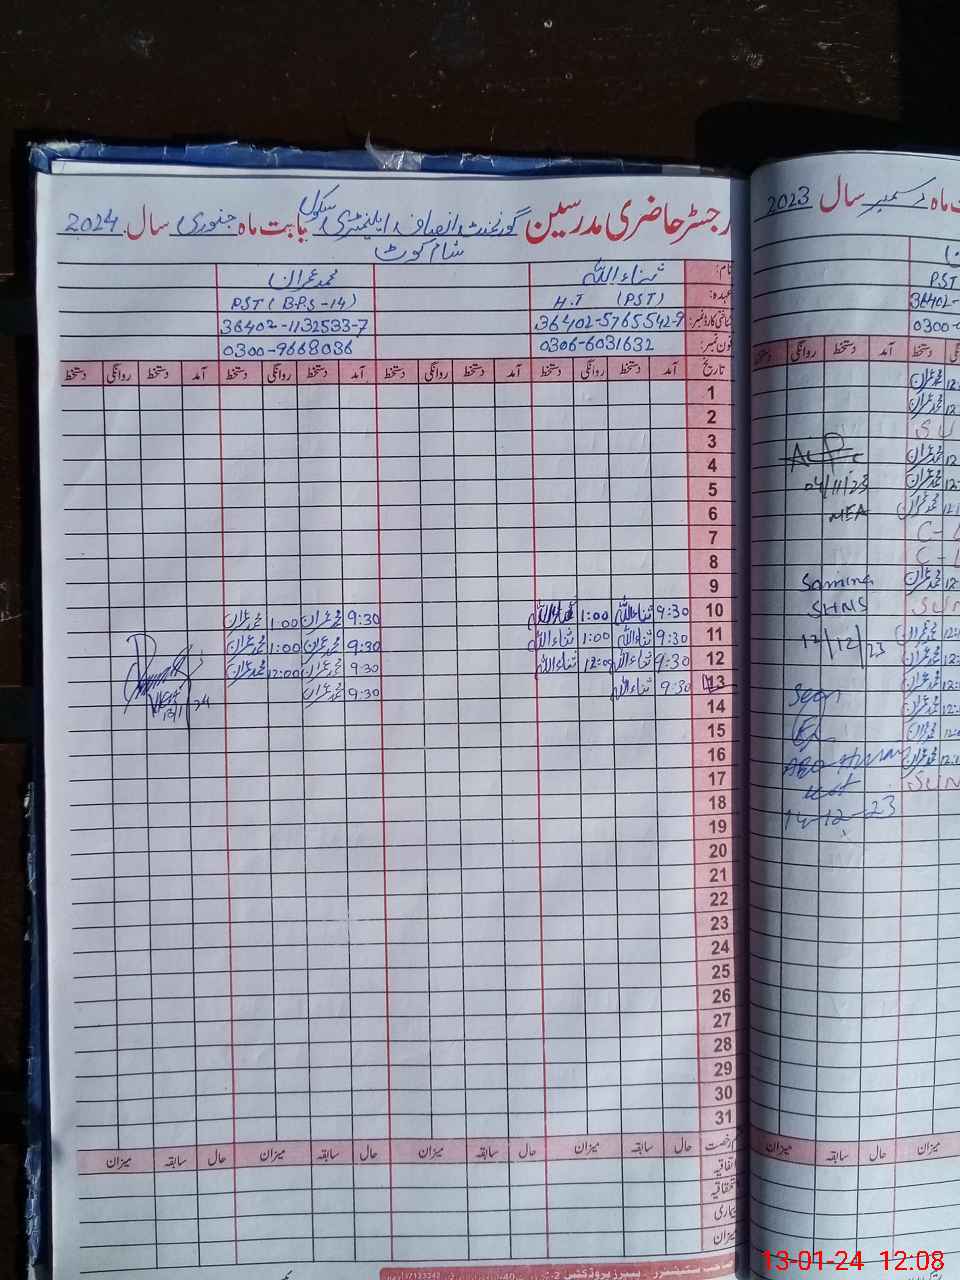 رجسٹر حاضری مدرسین گورنمنٹ انصاف ایلیمنٹری سکول بابت ماہ جنوری سال 2024
شام کوٹ
نام: ثناءاللہ محمد عمران
عہدہ: H.T (PST) PST (B.P.S-14)
شناختی کارڈ نمبر: 36402-5765542-9 36402-1132533-7
فون نمبر: 0306-6031632 0300-9668036
تاریخ آمد دستخط روانگی دستخط آمد دستخط روانگی دستخط آمد دستخط روانگی دستخط آمد دستخط روانگی دستخط
1
2
3
4
5
6
7
8
9
10 9:30 ثناءاللہ 1:00 ثناءاللہ 9:30 محمد عمران 1:00 محمد عمران
11 9:30 ثناءاللہ 1:00 ثناءاللہ 9:30 محمد عمران 1:00 محمد عمران
12 9:30 ثناءاللہ 12:00 ثناءاللہ 9:30 محمد عمران 12:00 محمد عمران
13 9:30 ثناءاللہ 9:30 محمد عمران
14
15
16
17
18
19
20
21
22
23
24
25
26
27
28
29
30
31
رخصت حال سابقہ میزان حال سابقہ میزان حال سابقہ میزان حال سابقہ میزان
اتفاقیہ
استحقاقیہ
بیماری
میزان
ماہ دسمبر سال 2023
PST
36402-
0300-
دستخط آمد دستخط روانگی دستخط
04/11/23
MEA
Samina
SHNS
12/12/23
Seen
14-12-23
میزان حال سابقہ میزان
13-01-24 12:08